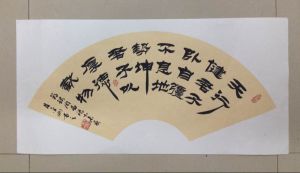 天行
健君子
以自強
不息地
勢坤
君子以
厚德
載物